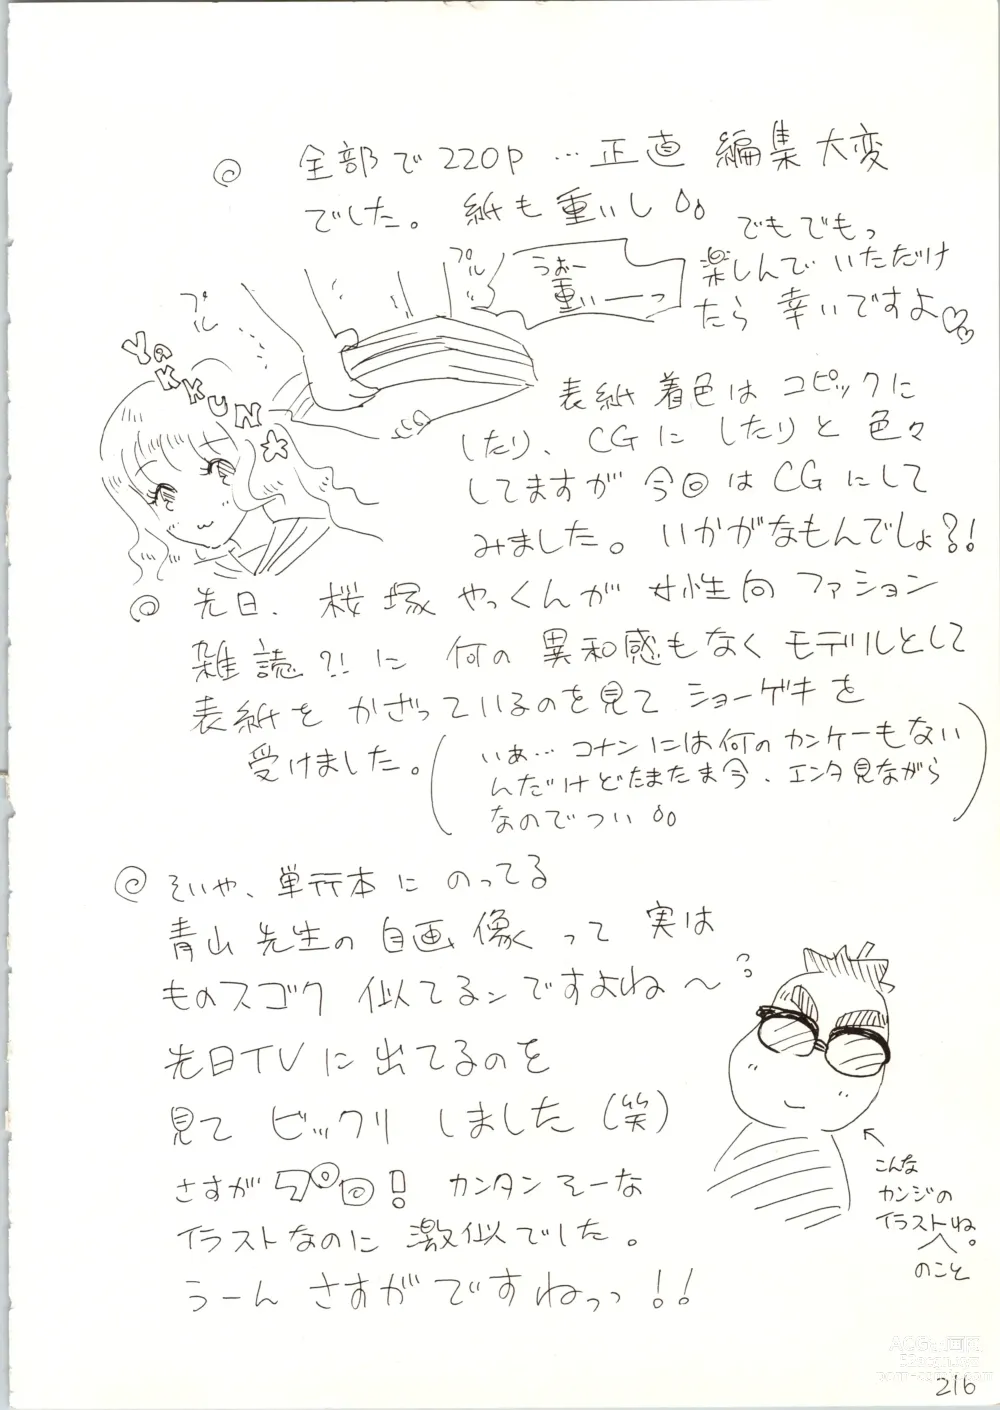 ◎ 全部で220P…正直 編集大変
でした。紙も重いし
でもでもっ
楽しんでいただけ
たら 幸いですよ♡♡
プル
うおー
重いーっ
プル
YAKKUN☆
表紙着色は コピックに
したり、CGに したりと 色々
してますが 今回は CGにして
みました。いかがなもんでしょ?!
◎ 先日、桜塚やっくんが 女性向ファション
雑誌?!に 何の異和感もなくモデルとして
表紙を かざっているのを見て ショーゲキを
受けました。
(いあ…コナンには何のカンケーもない
んだけどたまたま今、エンタ見ながら
なのでつい)
◎ そいや、単行本に のってる
青山先生の自画像って 実は
ものスゴク 似てるンですよね〜
先日TVに出てるのを
見て ビックリ しました(笑)
さすがプロ! カンタンそーな
イラストなのに 激似でした。
うーん さすがですねっっ!!
こんな
カンジの
イラストね。
のこと
216